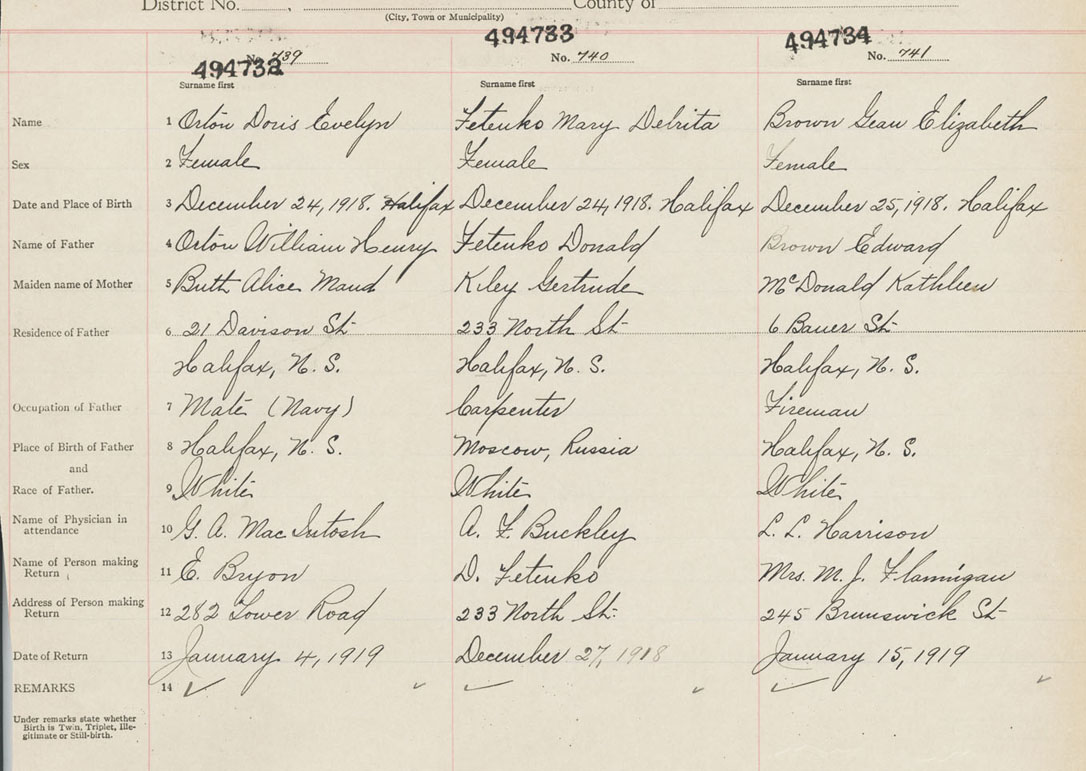 District No. , County of
(City, Town or Municipality)
494732 No. 739 494733 No. 740 494734 No. 741
Surname first Surname first Surname first
Name 1 Orton Doris Evelyn Fetenko Mary Delrita Brown Gean Elizabeth
Sex 2 Female Female Female
Date and Place of Birth 3 December 24, 1918. Halifax December 24, 1918. Halifax December 25, 1918. Halifax
Name of Father 4 Orton William Henry Fetenko Donald Brown Edward
Maiden name of Mother 5 Butt Alice Maud Kiley Gertrude McDonald Kathleen
Residence of Father 6 21 Davison St- 233 North St- 6 Bauer St-
Halifax, N. S. Halifax, N. S. Halifax, N. S.
Occupation of Father 7 Mate (Navy) Carpenter Fireman
Place of Birth of Father 8 Halifax, N. S. Moscow, Russia Halifax, N. S.
and
Race of Father. 9 White White White
Name of Physician in
attendance 10 G. A. MacIntosh A. F. Buckley L. L. Harrison
Name of Person making
Return 11 E. Bryon D. Fetenko Mrs. M. J. Flannigan
Address of Person making
Return 12 282 Tower Road 233 North St. 245 Brunswick St-
Date of Return 13 January 4, 1919 December 27, 1918 January 15, 1919
REMARKS 14
Under remarks state whether
Birth is Twin, Triplet, Ille-
gitimate or Still-birth.